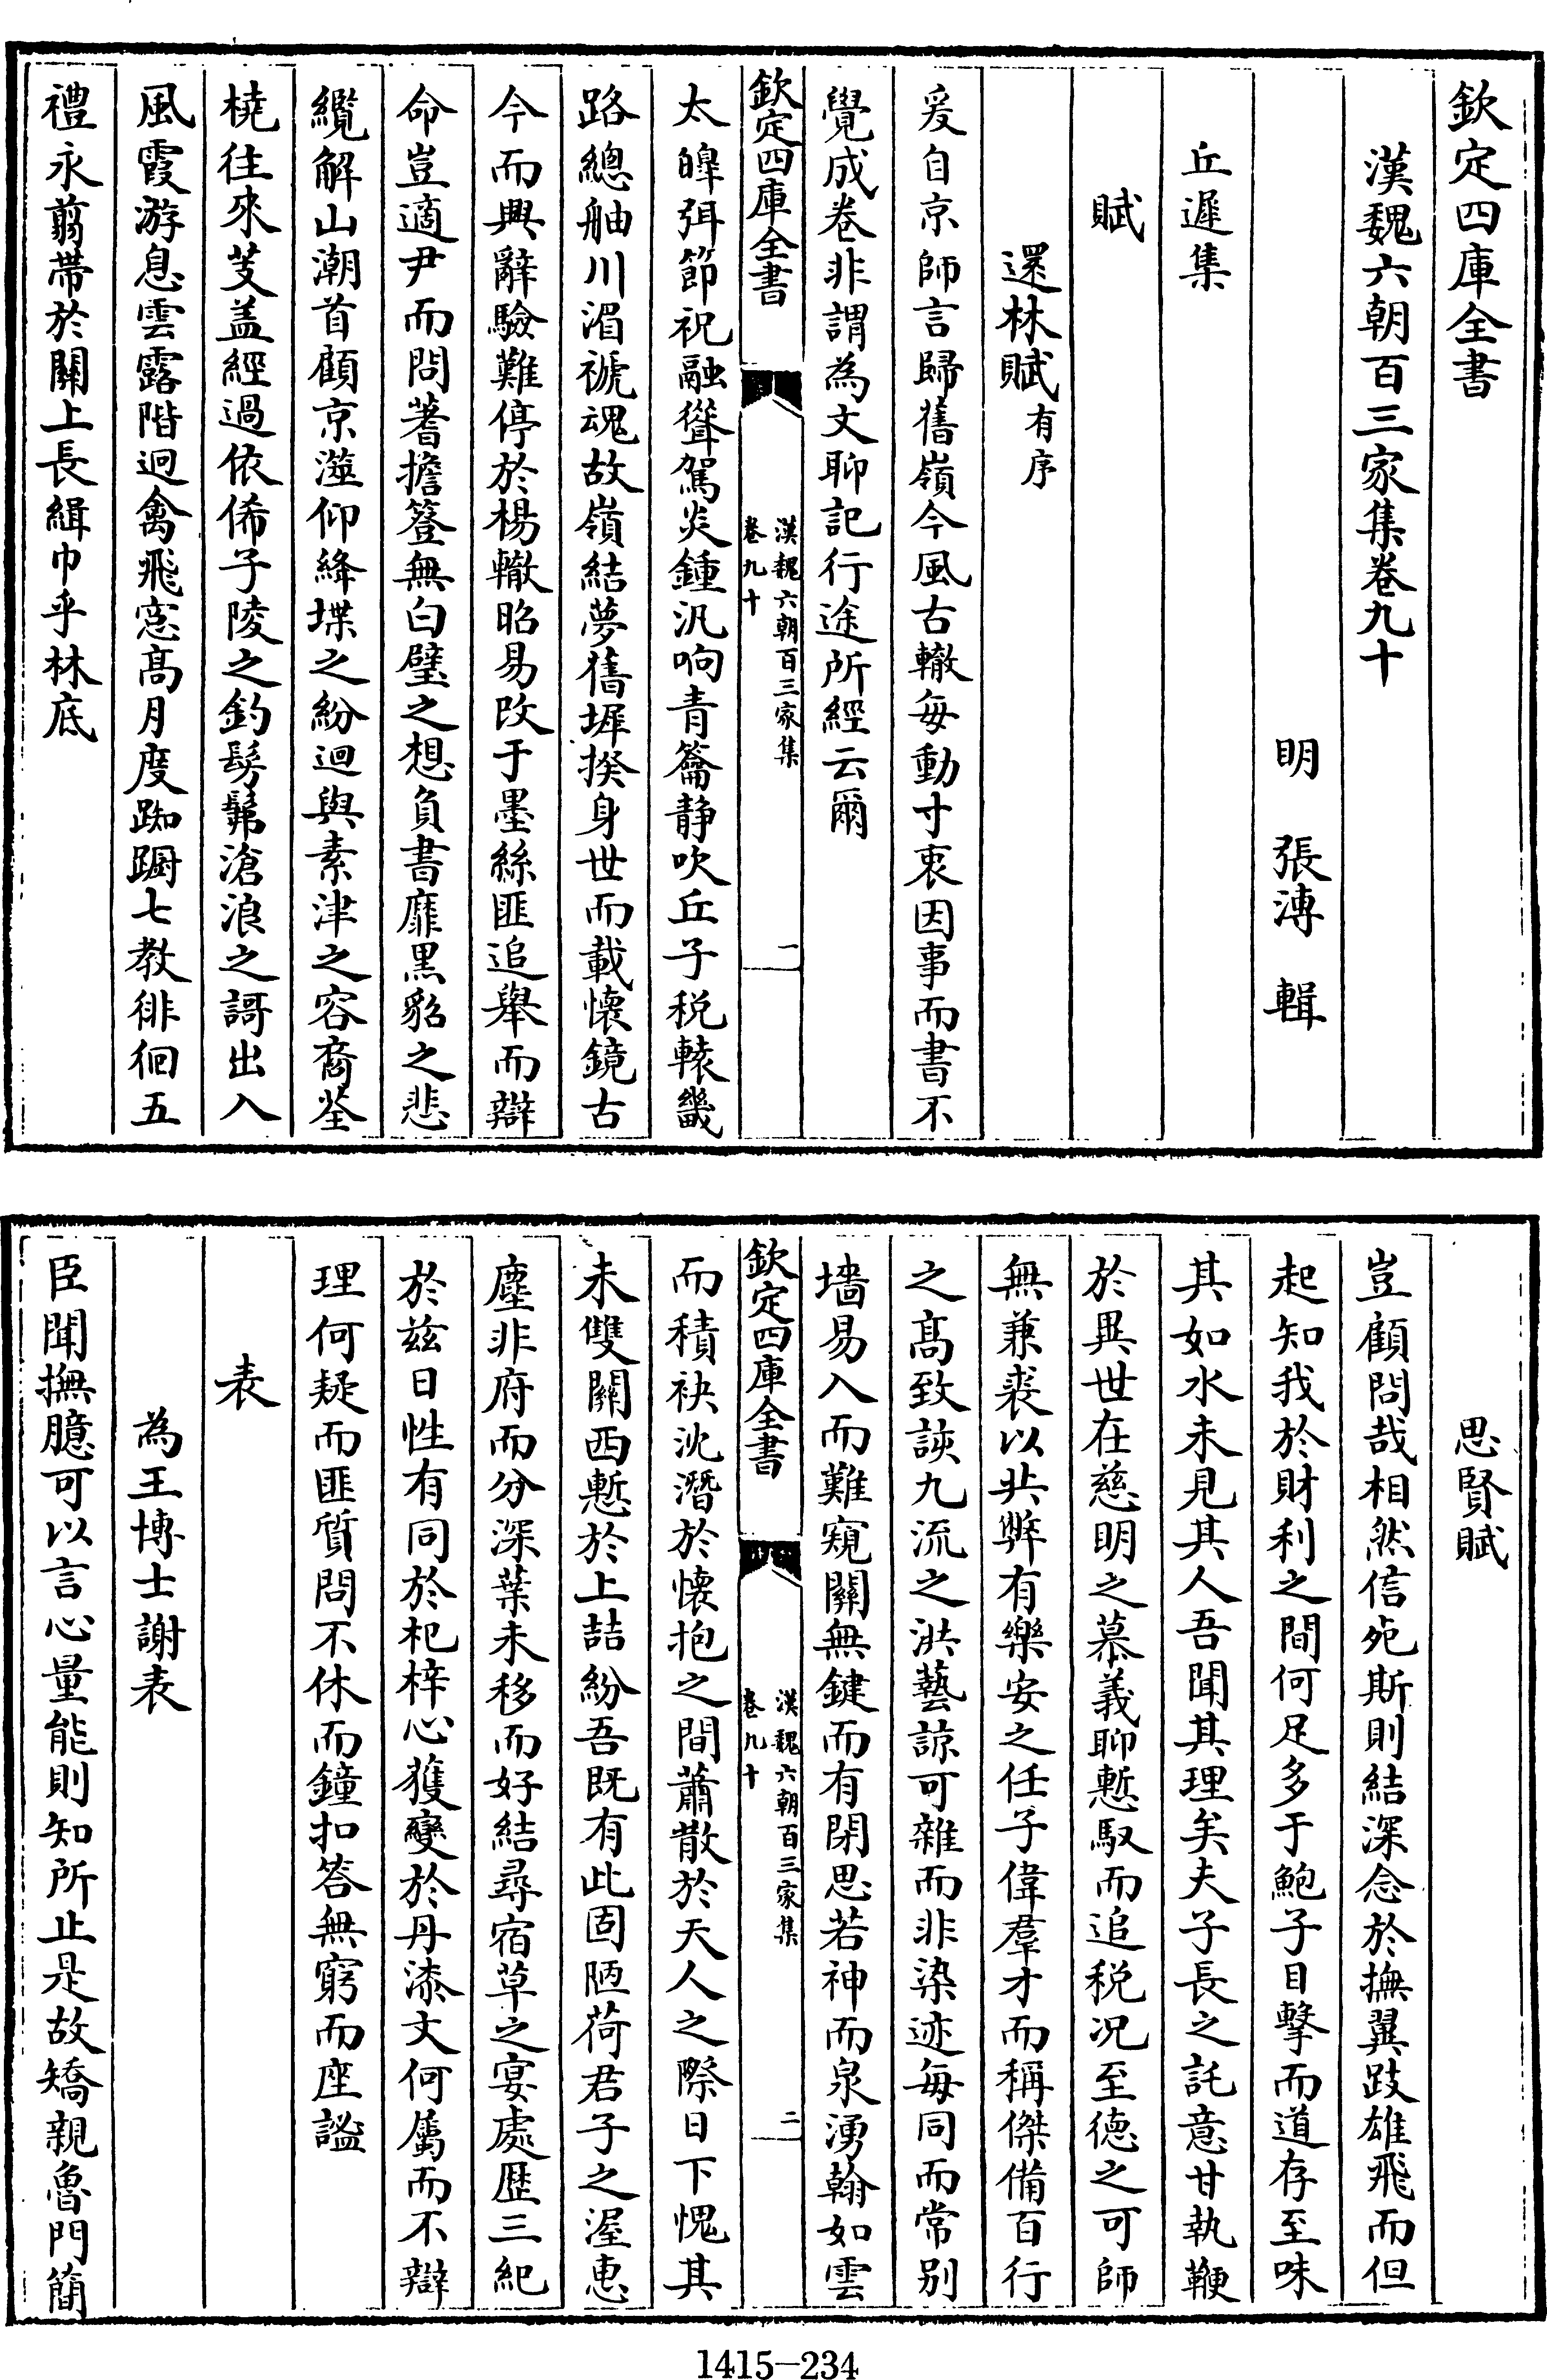 欽定四庫全書
漢魏六朝百三家集卷九十
明 張溥 輯
丘遲集
賦
還林賦有序
爰自京師言歸舊嶺今風古轍每動寸衷因事而書不
覺成卷非謂為文聊記行途所經云爾
欽定四庫全書
漢魏六朝百三家集
卷九十
一
太皥弭節祝融聳駕炎鍾汎响青籥静吹丘子税轅畿
路總舳川湄禠魂故嶺結夢舊墀揆身世而載懷鏡古
今而興辭驗難停於楊轍昭易改于墨絲匪追舉而辯
命豈適尹而問蓍擔簦無白璧之想負書靡黒貂之悲
纜解山潮首顧京滋仰絳堞之紛迴與素津之容裔荃
橈往來芰盖經過依俙子陵之釣髣髴滄浪之謌出入
風霞游息雲露階迥禽飛窓髙月度踟蹰七教徘徊五
禮永翦帶於闗上長緝巾乎林底
思賢賦
豈顧問哉相然信宛斯則結深念於撫翼跂雄飛而但
起知我於財利之間何足多于鮑子目擊而道存至味
其如水未見其人吾聞其理矣夫子長之託意甘執鞭
於異世在慈明之慕義聊慙馭而追税况至德之可師
無兼裘以共弊有樂安之任子偉羣才而稱傑備百行
之髙致該九流之洪藝諒可雜而非染迹每同而常别
墻易入而難窺闗無鍵而有閉思若神而泉湧翰如雲
欽定四庫全書
漢魏六朝百三家集
卷九十
二
而積袂沈潛於懷抱之間蕭散於天人之際日下愧其
未雙闗西慙於上喆紛吾既有此固陋荷君子之渥惠
塵非府而分深葉未移而好結尋宿草之宴處歴三紀
於兹日性有同於杞梓心獲變於丹漆文何屬而不辯
理何疑而匪質問不休而鐘扣答無窮而座謐
表
為王博士謝表
臣聞撫臆可以言心量能則知所止是故矯親魯門簡
1415-234